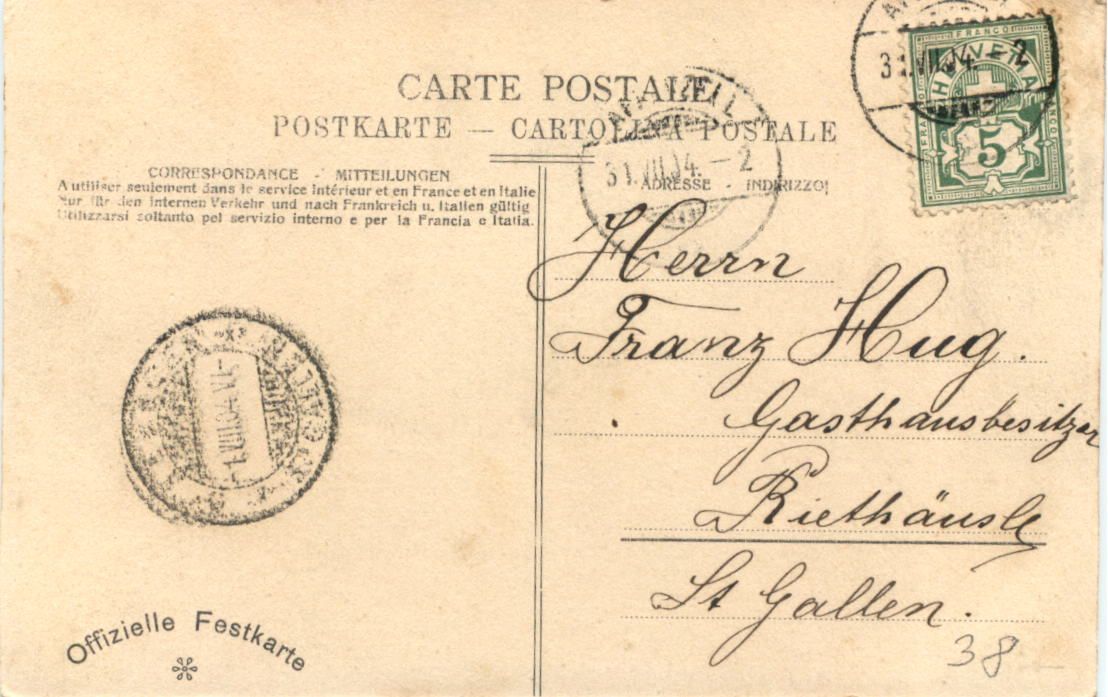 CARTE POSTALE
POSTKARTE — CARTOLINA POSTALE
CORRESPONDANCE - MITTEILUNGEN
A utiliser seulement dans le service intérieur et en France et en Italie
Nur für den internen Verkehr und nach Frankreich u. Italien gültig
Utilizzarsi soltanto pel servizio interno e per la Francia e Italia.
ADRESSE - INDIRIZZO
31.VII.04.-2
31.VII.04.-2
FRANCO
HELVETIA
5
Herrn
Franz Hug.
Gasthausbesitzer
Riethäusle
St Gallen.
38
ST. GALLEN
1.VIII.04
Offizielle Festkarte